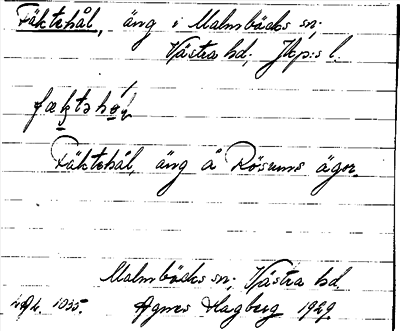 Fäktehål, äng i Malmbäcks sn;
Västra hd; Jkp:s l.
Fäktehål, äng å Rösums ägor.
Malmbäcks sn; Västra hd.
1035. Agnes Hagberg 1929.